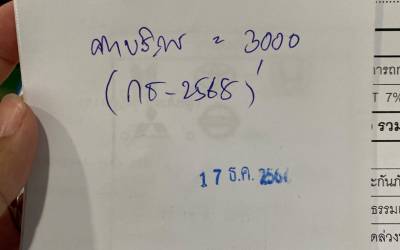 = 3000
(กธ-2568)
17 ธ.ค.
ารถก
T 7%
รวม
ะกันภั
ธรรมเ
ดล่วง